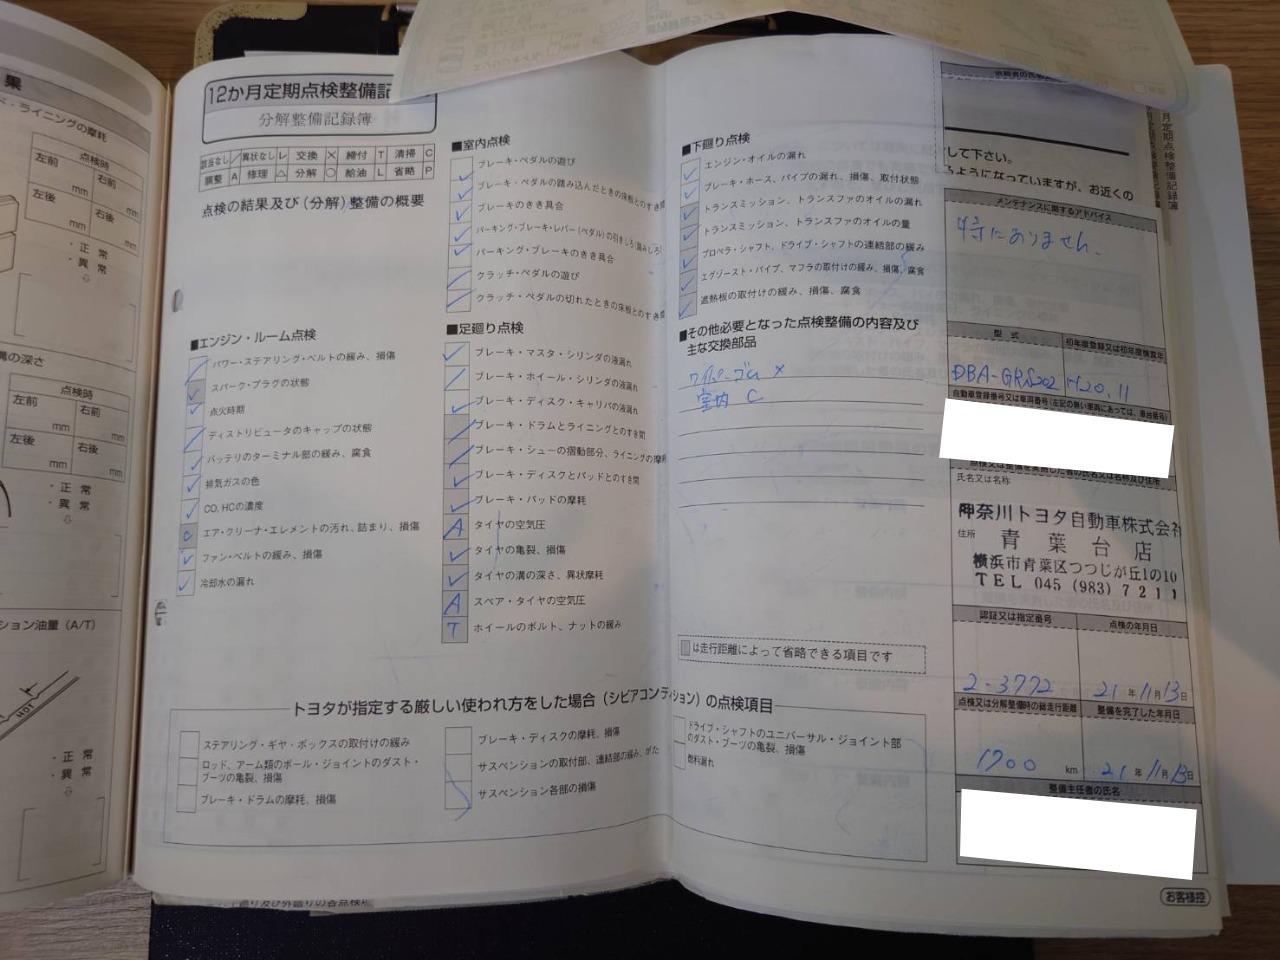 果
ド・ライニングの摩耗
点検時
左前
右前
mm
mm
左後
右後
mm
mm
・正 常
・異 常
溝の深さ
点検時
左前
右前
mm
mm
左後
右後
mm
mm
・正 常
・異 常
ション油量（A/T）
HOT
・正 常
・異 常
12か月定期点検整備記
分解整備記録簿
該当なし / 異状なし レ 交換 × 締付 T 清掃 C
調整 A 修理 △ 分解 ○ 給油 L 省略 P
点検の結果及び（分解）整備の概要
■エンジン・ルーム点検
パワー・ステアリング・ベルトの緩み、損傷
スパーク・プラグの状態
点火時期
ディストリビュータのキャップの状態
バッテリのターミナル部の緩み、腐食
排気ガスの色
CO,HCの濃度
C エア・クリーナ・エレメントの汚れ、詰まり、損傷
ファン・ベルトの緩み、損傷
冷却水の漏れ
■室内点検
ブレーキ・ペダルの遊び
ブレーキ・ペダルの踏み込んだときの床板とのすき間
ブレーキのきき具合
パーキング・ブレーキ・レバー(ペダル)の引きしろ(踏みしろ)
パーキング・ブレーキのきき具合
クラッチ・ペダルの遊び
クラッチ・ペダルの切れたときの床板とのすき間
■足廻り点検
ブレーキ・マスタ・シリンダの液漏れ
ブレーキ・ホイール・シリンダの液漏れ
ブレーキ・ディスク・キャリパの液漏れ
ブレーキ・ドラムとライニングとのすき間
ブレーキ・シューの摺動部分、ライニングの摩耗
ブレーキ・ディスクとパッドとのすき間
ブレーキ・パッドの摩耗
A タイヤの空気圧
タイヤの亀裂、損傷
タイヤの溝の深さ、異状摩耗
A スペア・タイヤの空気圧
T ホイールのボルト、ナットの緩み
■下廻り点検
エンジン・オイルの漏れ
ブレーキ・ホース、パイプの漏れ、損傷、取付状態
トランスミッション、トランスファのオイルの漏れ
トランスミッション、トランスファのオイルの量
プロペラ・シャフト、ドライブ・シャフトの連結部の緩み
エグゾースト・パイプ、マフラの取付けの緩み、損傷、腐食
遮熱板の取付けの緩み、損傷、腐食
■その他必要となった点検整備の内容及び
主な交換部品
ワイパーゴム ×
室内 C
は走行距離によって省略できる項目です
トヨタが指定する厳しい使われ方をした場合（シビアコンディション）の点検項目
ステアリング・ギヤ・ボックスの取付けの緩み
ロッド、アーム類のボール・ジョイントのダスト・
ブーツの亀裂、損傷
ブレーキ・ドラムの摩耗、損傷
ブレーキ・ディスクの摩耗、損傷
サスペンションの取付部、連結部の緩み、がた
サスペンション各部の損傷
ドライブ・シャフトのユニバーサル・ジョイント部
のダスト・ブーツの亀裂、損傷
燃料漏れ
して下さい。
るようになっていますが、お近くの
メンテナンスに関するアドバイス
特にありません.
型 式
初年度登録又は初年度検査年
DBA-GRS202
H20.11
自動車登録番号又は車両番号(左記の無い車両にあっては、車台番号)
点検又は整備を実施した者の氏名又は名称及び住所
氏名又は名称
神奈川トヨタ自動車株式会社
住所
青 葉 台 店
横浜市青葉区つつじが丘1の10
TEL 045 (983) 7211
認証又は指定番号
点検の年月日
2-3772
21 年 11 月 13 日
点検又は分解整備時の総走行距離
整備を完了した年月日
1700 km
21 年 11 月 13 日
整備主任者の氏名
お客様控